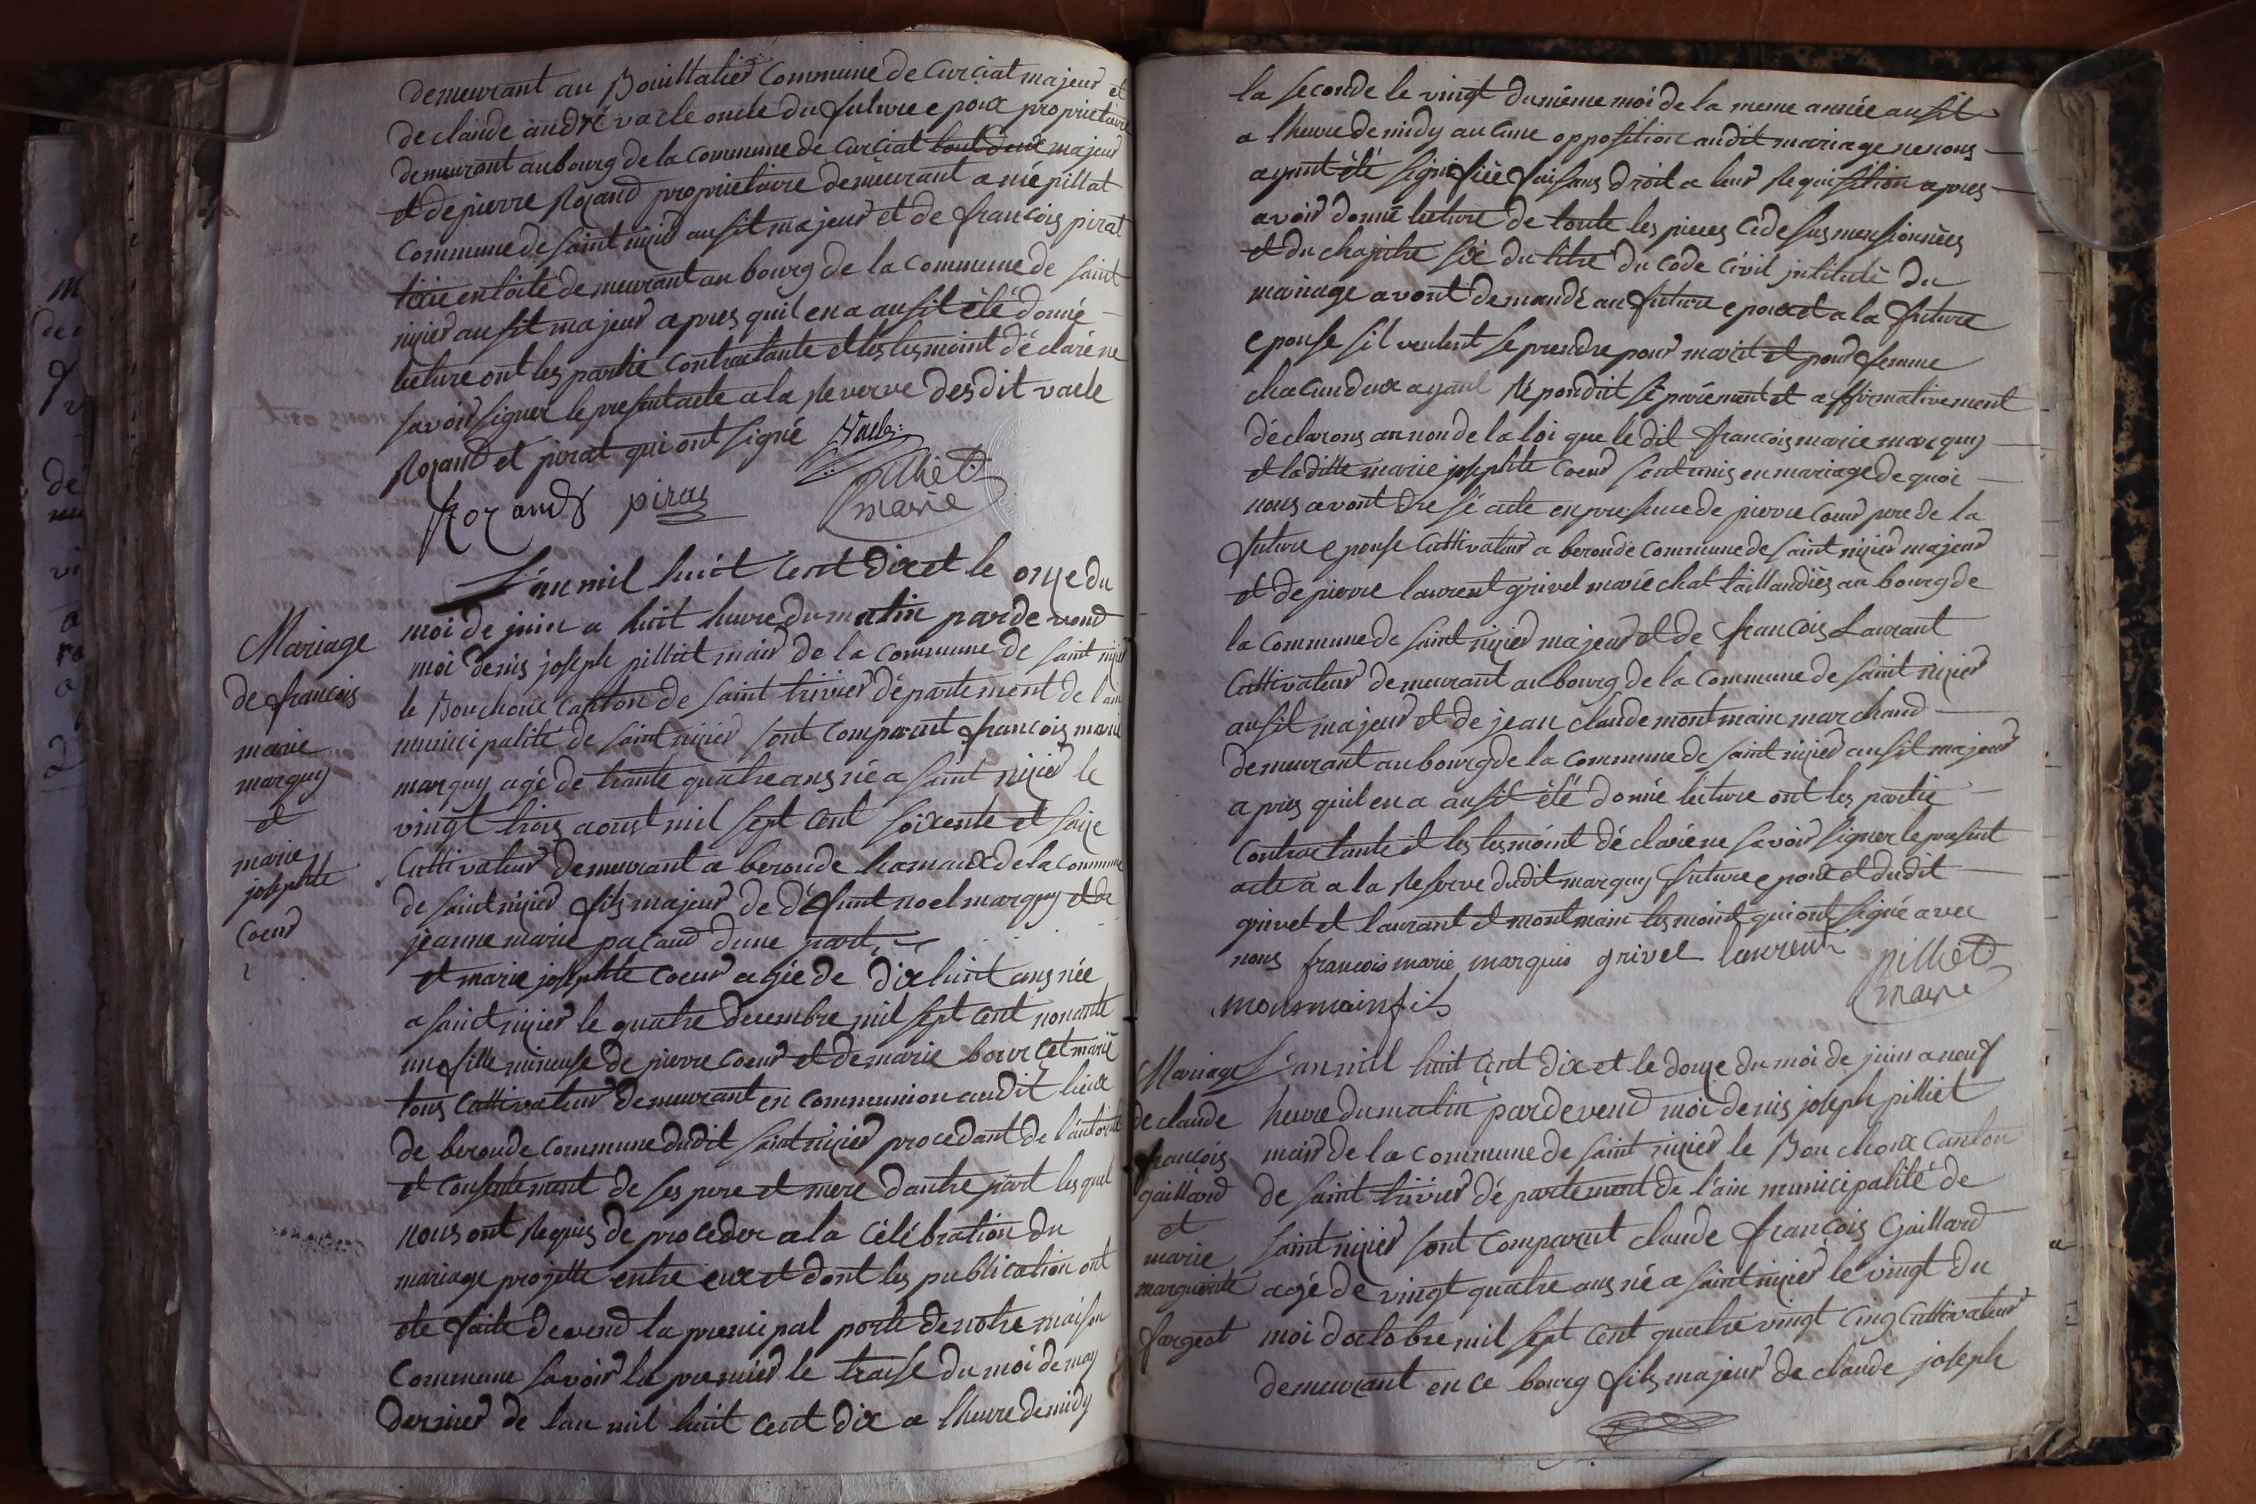 demeurant au Bouillatier Commune de Curciat majeur et
de claude andré vacle oncle du future epoux proprietaire
demeurant au bourg de la commune de Curciat tout deux majeur
et de pierre Rozand proprietaire demeurant a népillat
Commune de saint nizier ausit majeur et de françois pirat
tixie en toile demeurant au bourg de la commune de saint
nizier ausit majeur apres quil en a ausit été donné
lecture ont les partie contractante et les tesmoint déclaré ne
savoir signer le present acte a la reserve desdit vacle
Rozand et pirat qui ont signé Vacle
Rozand pirat pilliet
maire
Mariage
de françois
marie
marquy
et
marie
josephte
Coeur
L'an mil huit cent dix et le onze du
moi de juin a huit heure du matin par de vend
moi denis joseph pilliet mair de la commune de saint nizier
le Bouchoux canton de saint trivier département de l'ain
municipalité de saint nizier sont comparut françois marie
marquy agé de trante quatre ans né a saint nizier le
vingt trois aoust mil sept cent soixente et saize
Cultivateur demeurant a beroude hamaux de la commune
de saint nizier fils majeur de défunt noel marquy et de
jeanne marie pacaud dune part
et marie josephte coeur agée de dix huit ans née
a sainct nizier le quatre decembre mil sept cent nonante
un fille mineuse de pierre coeur et de marie bourcet marié
tous cultivateur demeurant en communion audit lieux
de beroude commune dudit saint nizier procedant de l'autorité
et consentement de ses pere et mere dautre part les quel
nous ont requis de proceder a la célébration du
mariage projetté entre eux et dont les publication ont
été faite devend la principal porte de notre maison
Commune savoir la premier le traise du moi de may
dernier de lan mil huit cent dix a lheure de midy
la seconde le vingt du même moi de la meme année ausit
a lheure de midy aucune opposition audit mariage ne nous
ayant été signifiée faisans droit a leur requisition apres
avoir donné lecture de toute les pieces cidesus mensionnées
et du chapitre six du titre du code Civil intitulé du
mariage avont demandé au future epoux et a la future
epouse sil veulent se prendre pour marit et pour femme
chacun deux ayant répondut séparément et affirmativement
déclarons au non de la loi que le dit françois marie marquy
et ladille marie josephte coeur sont unis en mariage de quoi
nous avont dresé acte en presence de pierre coeur pere de la
future epouse Cultivateur a beroude commune de saint nizier majeur
et de pierre laurent grivel maréchal taillandiés au bourg de
la commune de saint nizier majeur et de françois Laurant
Cultivateur demeurant au bourg de la commune de saint nizier
ausit majeur et de jean claude montmain marchand
demeurant au bourg de la commune de saint nizier ausit majeur
apres quil en a ausit été donné lecture ont les partie
contractante et les tesmoint déclaré ne savoir signer le present
acte a a la reserve dudit marquy future epoux et dudit
grivet et laurant et montmain tesmoint qui ont signé avec
nous françois marie marquis grivel laurent pilliet
monsmain fils maire
Mariage
de claude
françois
gaillard
et
marie
marguerite
fargeot
L'an mil huit cent dix et le douze du moi de juin a neuf
heure du matin par devend moi denis joseph pilliet
mair de la commune de saint nizier le Bouchoux canton
de saint trivier département de l'ain municipalité de
saint nizier sont comparut claude françois Gaillard
agé de vingt quatre ans né a saint nizier le vingt du
moi doctobre mil sept cent quatre vingt cinq Cultivateur
demeurant en ce bourg fils majeur de claude joseph